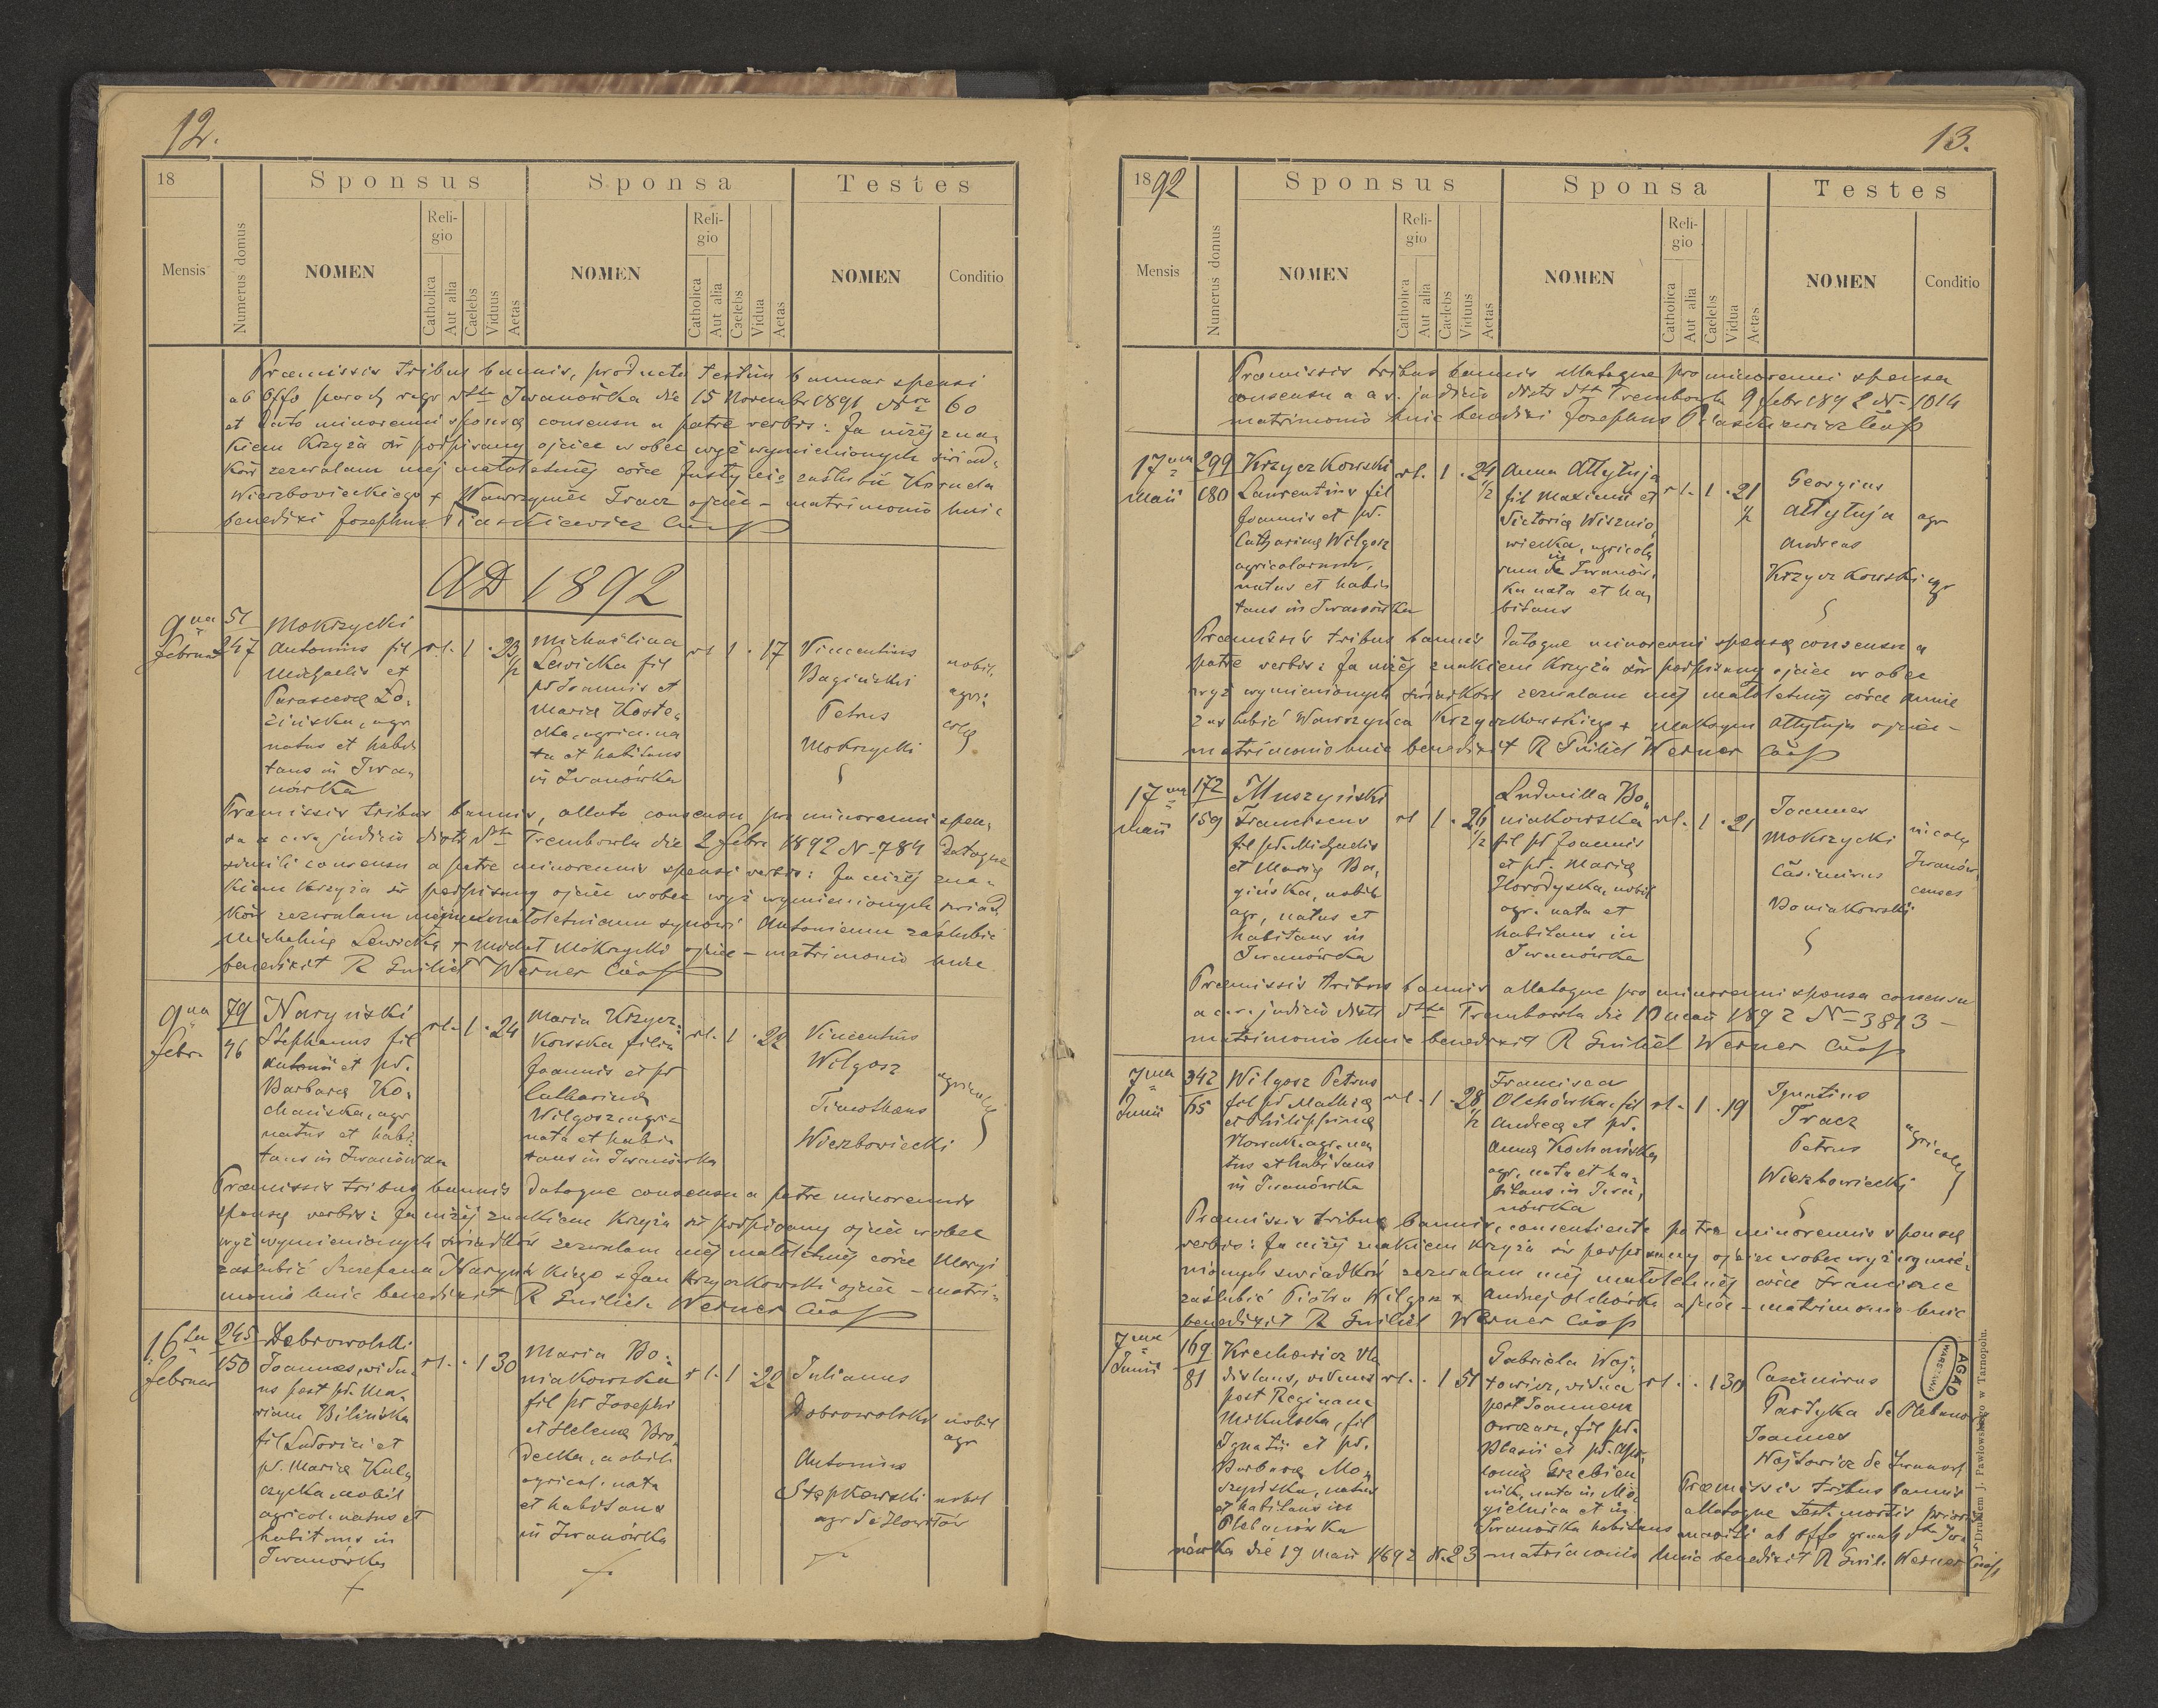 12.
18
Sponsus
Sponsa
Testes
Mensis
Numerus domus
NOMEN
Religio
Catholica
Aut alia
Caelebs
Viduus
Aetas
NOMEN
Religio
Catholica
Aut alia
Caelebs
Vidua
Aetas
NOMEN
Conditio
Præmissis tribus bannis, producta testim bannar sponsi
ab Offo paroch r. gr. dtto Iwanówka die 15 Novembr 1891 Nro 60
et dato minorenni sponsæ consensu a patre verbis: Ja niżéj zna-
kiem krzyża św podpisany ojciec wobec wyż wymienionych świad-
ków zezwalam méj małoletniéj córce Justynie zaślubić
Wierzbowieckiego + Wawrzyniec Tracz ojciec – matrimonio huic
benedixi Josephus Ptaszkiewicz
AD 1892
9na
Februar
51
247
Mokrzycki
Antonius fil
Michaelis et
Parascevæ Ło-
zińska, agr
natus et habi
tans in Iwa-
nówka
rl. 1 . 23 1/2
Michaëlina
Lewicka fil
pd Joannis et
Mariæ Koste-
cka, agric. na
ta et habitans
in Iwanówka
rl 1 . 17
Vincentius
Bagiński
Petrus
Mokrzycki
nobil.
agri-
colæ
Præmissis tribus bannis, allato consensu pro minorenni spon-
sa a c. r. judicio distr dtto Trembowla die 2 Febr 1892 N-784 datoque
simili consensu a patre minorennis sponsi verbis: Ja niżéj zna-
kiem krzyża św podpisany ojciec wobec wyż wymienionych świad
ków zezwalam mojemu małoletniemu synowi Antoniemu zaślubić
Michalinę Lewicką + Michał Mokrzycki ojciec – matrimonio huic
benedixit R Guiliel Werner
9na
Febr.
79
46
Naryński
Stephanus fil
Antonii et pd.
Barbaræ Ko-
chańska, agr
natus et habi-
tans in Iwanówka
rl. 1 . 24
Maria Krzycz-
kowska filia
Joannis et pd
Catharinæ
Wilgosz, agri-
nata et habi-
tans in Iwanówka
rl. 1 . 22
Vincentius
Wilgosz
Timotheus
Wierzbowiecki
agricolæ
Præmissis tribus bannis datoque consensu a patre minorennis
sponsæ verbis: Ja niżéj znakiem krzyża św podpisany ojciec wobec
wyż wymienionych świadków zezwalam méj małoletniéj córce Maryi
zaślubić Szczefana Naryńskiego + Jan Krzyczkowski ojciec – matri-
monio huic benedixit R Guiliel. Werner
16ta
Februar
245
150
Dobrowolski
Joannes, vidu-
us post pd. Ma-
riam Bilińska
fil Ludovici et
pd. Mariæ Kul
czycka, nobil
agricol. natus et
habitans in
Iwanówka
rl. . 1 30
Maria Bo-
niakowska
fil pd Josephi
et Helenæ Bro
decka, nobil.
agricol. nata
et habitans
in Iwanówka
rl. 1 . 22
Julianus
Dobrowolski
nobil
agr
Antonius
Stępkowski nobil
agr de Howiłów
13.
1892
Sponsus
Sponsa
Testes
Mensis
Numerus domus
NOMEN
Religio
Catholica
Aut alia
Caelebs
Viduus
Aetas
NOMEN
Religio
Catholica
Aut alia
Caelebs
Vidua
Aetas
NOMEN
Conditio
Præmissis tribus bannis allatoque pro minorenni sponsa
consensu a c. r. judicio distr dtto Trembowla 9 Febr 1892 N-1014
matrimonio huic benedixi Josephus Ptaszkiewicz
17ma
Maii
299
180
Krzyczkowski
Laurentius fil
Joannis et pd.
Catharinæ Wilgosz
agricolarum,
natus et habi
tans in Iwanówka
rl. 1 . 24 1/2
Anna Attytuja
fil Maximi et
Victoriæ Wisznio
wiecka, agricola
rum in Iwanów-
ka nata et ha-
bitans
rl. 1 . 21 1/2
Georgius
Attytuja agr
Andreas
Krzyczkowski agr
Præmissis tribus bannis datoque minorenni sponsæ consensu a
patre verbis: Ja niżéj znakiem krzyża św podpisany ojciec wobec
wyż wymienionych świadków zezwalam méj małoletniéj córce Annie
zaślubić Wawrzyńca Krzyczkowskiego + Maksym Attytuja ojciec –
matrimonio huic benedixit R Guiliel Werner
17ma
Maii
172
159
Muszyński
Franciscus
fil pd. Michaelis
et Mariæ Ba-
gińska, nobil.
agr, natus et
habitans in
Iwanówka
rl 1 . 26 1/2
Ludmilla Bo-
niakowska
fil pd Joannis
et pd. Mariæ
Horodyska, nobil
agr. nata et
habitans in
Iwanówka
rl. 1 . 21
Joannes
Mokrzycki
Casimirus
Boniakowski
Præmissis tribus bannis allatoque pro minorenni sponsa consensu
a c. r. judicio distr dtto Trembowla die 10 Maii 1892 N-3813 –
matrimonio huic benedixit R Guiliel Werner
7ma
Junii
342
65
Wilgosz Petrus
fil pd Mathiæ
et Philippinæ
Nowak, agr. na
tus et habitans
in Iwanówka
rl. 1 . 28 1/2
Francisca
Olchówka, fil
Andreæ et pd.
Annæ Kochańska
agr, nata et ha-
bitans in Iwa-
nówka
rl. 1 . 19
Ignatius
Tracz
Petrus
Wierzbowiecki
agricolæ
Præmissis tribus bannis, consentiente patre minorennis sponsæ
verbis: Ja niżéj znakiem krzyża św podpisany ojciec wobec wyż wymie-
nionych świadków zezwalam méj małoletniéj córce Franciszce
zaślubić Piotra Wilgosz + Andrzej Olchówka ojciec – matrimonio huic
benedixit R Guiliel Werner
7ma
Junii
169
81
Krechowicz Vla
dislaus, viduus
post Reginam
Mikulska, fil
Ignatii et pd.
Barbaræ Mo-
szyńska, natus
et habitans in
Plebanówka
rl. . 1 51
Gabriela Woj-
towicz, vidua
post Joannem
Owczarz, fil pd.
Blasii et pd. Apo-
loniæ Grzebien
nik, nata in Mo-
gielnica et in
Iwanówka habitans
rl. . 1 30
Casimirus
Partyka de Plebanów
Joannes
Wojtowicz de Iwanów
Præmissis tribus bannis
allatoque test. mortis prioris
mariti ab offo gr cath dtto Iwa
nówka die 19 Maii 1892 N. 23 matrimonio huic benedixit R Guil. Werner
AGAD
WARSZAWA
Drukiem J. Pawłowskiego w Tarnopolu.